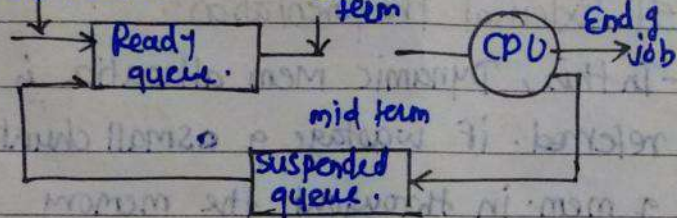 term
Ready
queue.
CPU
End of
job
mid term
suspended
queue.